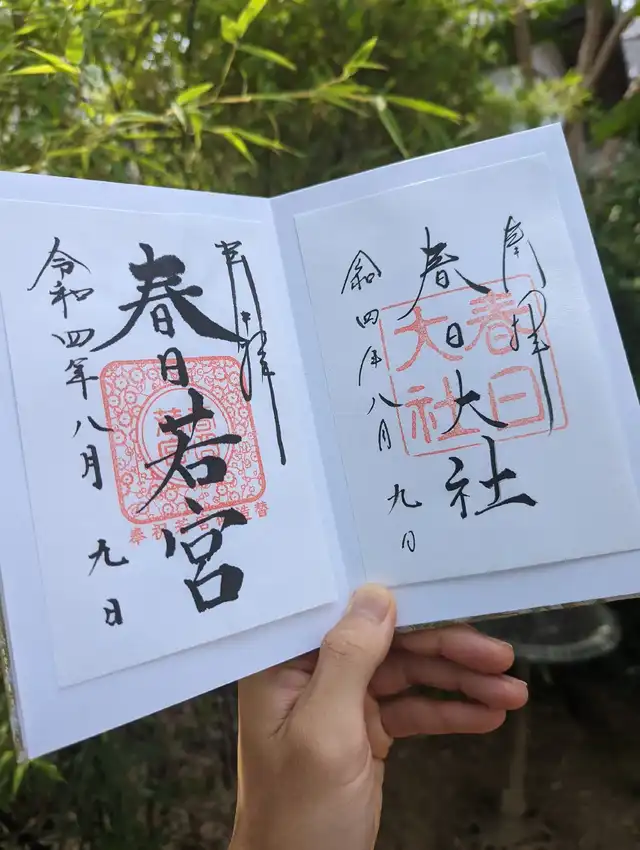 奉拝
春日大社
春日
大社
令和四年八月九日
奉拝
春日若宮
奉祝若宮御造替
令和四年八月九日